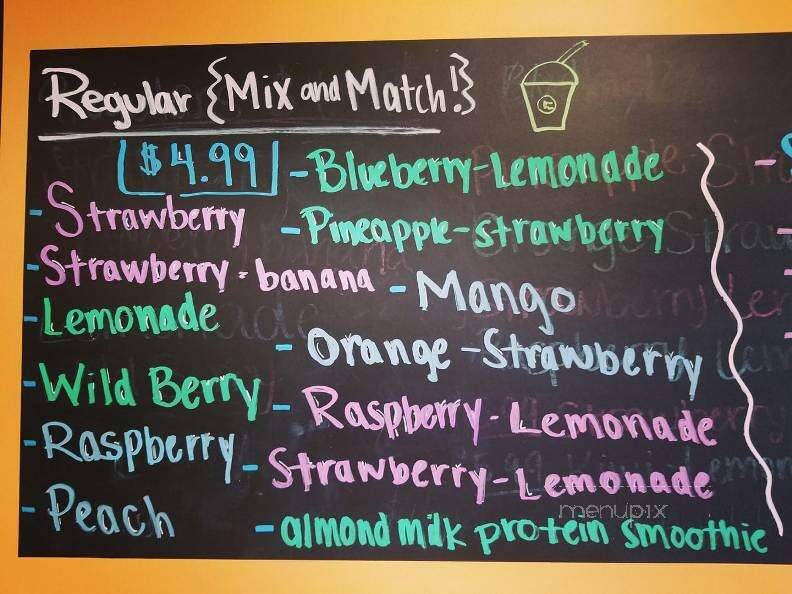 Regular {Mix and Match!}
$4.99
- Strawberry
- Strawberry-banana
- Lemonade
- Wild Berry
- Raspberry
- Peach
- Blueberry-Lemonade
- Pineapple-strawberry
- Mango
- Orange-Strawberry
- Raspberry-Lemonade
- Strawberry-Lemonade
- almond milk protein smoothie
menupix